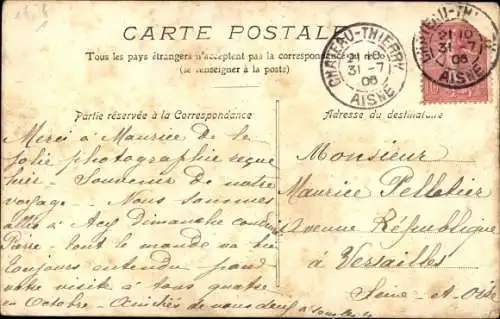 CARTE POSTALE
Tous les pays étrangers n'acceptent pas la correspondance au
(se renseigner à la poste)
CHATEAU-THIERRY
21 10
31 -7
06
AISNE
CHATEAU-THIERRY
21 10
31 -7
06
AISNE
Partie réservée à la Correspondance
Adresse du destinataire
Merci à Maurice de la
jolie photographie reçue
hier - Souvenir de notre
voyage - Nous sommes
allés à Acy Dimanche conduire
Pierre - tout le monde va bien
toujours entendu pour
votre visite à tous quatre
en Octobre - Amitiés de nous deux à tous les 4
Monsieur
Maurice Pelletier
Avenue République
à Versailles
Seine-et-Oise